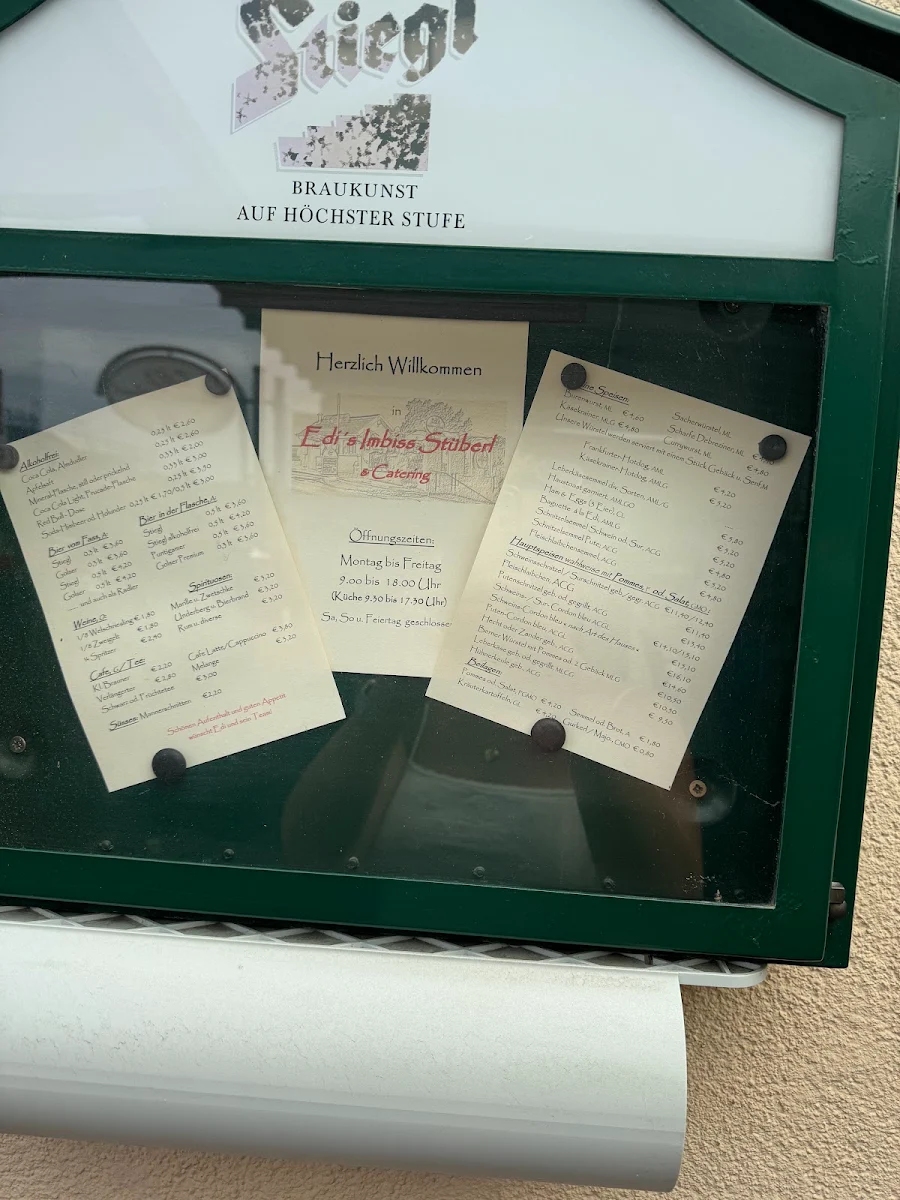 Stiegl
BRAUKUNST
AUF HÖCHSTER STUFE
Alkoholfrei:
Coca Cola, Almdudler 0,25 lt € 2,60
Apfelsaft 0,25 lt € 2,60
Mineral-Flasche, still oder prickelnd 0,25 lt € 2,00
Red Bull-Dose
Bier vom Fass, A:
Stiegl 0,5 lt € 3,60
Gösser
Stiegl
Gösser 0,5 lt € 4,20
und auch als Radler
Bier in der Flasche, A:
Stiegl 0,5 lt € 3,60
Stiegl alkoholfrei 0,5 lt € 4,20
Puntigamer 0,5 lt € 3,60
Gösser Premium 0,5 lt € 3,60
Weine, O:
1/8 Welschriesling € 1,80
1/8 Zweigelt € 1,80
¼ Spritzer € 2,90
Spirituosen:
Marille u. Zwetschke € 3,20
Underberg u. Bierbrand € 3,20
Rum u. diverse € 3,20
Cafe, G/Tee:
Kl. Brauner € 2,20
Verlängerter € 2,80
Schwarz od. Früchtetee € 2,20
Cafe Latte/Cappuccino € 3,80
Melange € 3,20
€ 3,00
Süsses: Mannerschnitten € 2,20
Schönen Aufenthalt und guten Appetit
wünscht Edi und sein Team!
Herzlich Willkommen
in
Edi´s Imbiss Stüberl
& Catering
Öffnungszeiten:
Montag bis Freitag
9.00 bis 18.00 Uhr
(Küche 9.30 bis 17.30 Uhr)
Sa, So u. Feiertag geschlossen
Speisen:
Burenwurst, ML € 4,60
Käsekrainer, MLG € 4,80
Sacherwürstel, ML
Scharfe Debreziner, ML
Currywurst, ML € 4,80
Unsere Würstel werden serviert mit einem Stück Gebäck u. Senf, M
Frankfurter-Hotdog, AML € 4,20
Käsekrainer-Hotdog, AMLG € 5,20
Leberkäsesemmel div. Sorten, AMLG
Haustoast garniert, AMLGO
Ham & Eggs (3 Eier), CL
Baguette a la Edi, AMLG
Schnitzelsemmel Schwein od. Sur, ACG
Schnitzelsemmel Pute, ACG
Fleischlaibchensemmel, ACG
Hauptspeisen wahlweise mit Pommes, r. od. Salat, CMO:
Schweinsschnitzel / Surschnitzel geb./ gegr. ACG € 11,90/12,90
Fleischlaibchen, ACG € 11,90
Putenschnitzel geb. od. gegrillt, ACG
Schweins- / Sur- Cordon bleu, ACGL € 14,10/15,10
Schweins-Cordon bleu „nach Art des Hauses" € 15,10
Puten-Cordon bleu, ACGL € 16,10
Hecht oder Zander geb. ACG
Berner Würstel mit Pommes od. 2 Gebäck MLG
Leberkäse geb. od. gegrillt MLCG
Hühnerkeule geb. ACG € 9,50
Beilagen:
Pommes od. Salat, CMO € 4,20
Semmel od. Brot, A € 1,80
Kräuterkartoffeln, GL
Gurkerl / Majo, CMO € 0,80